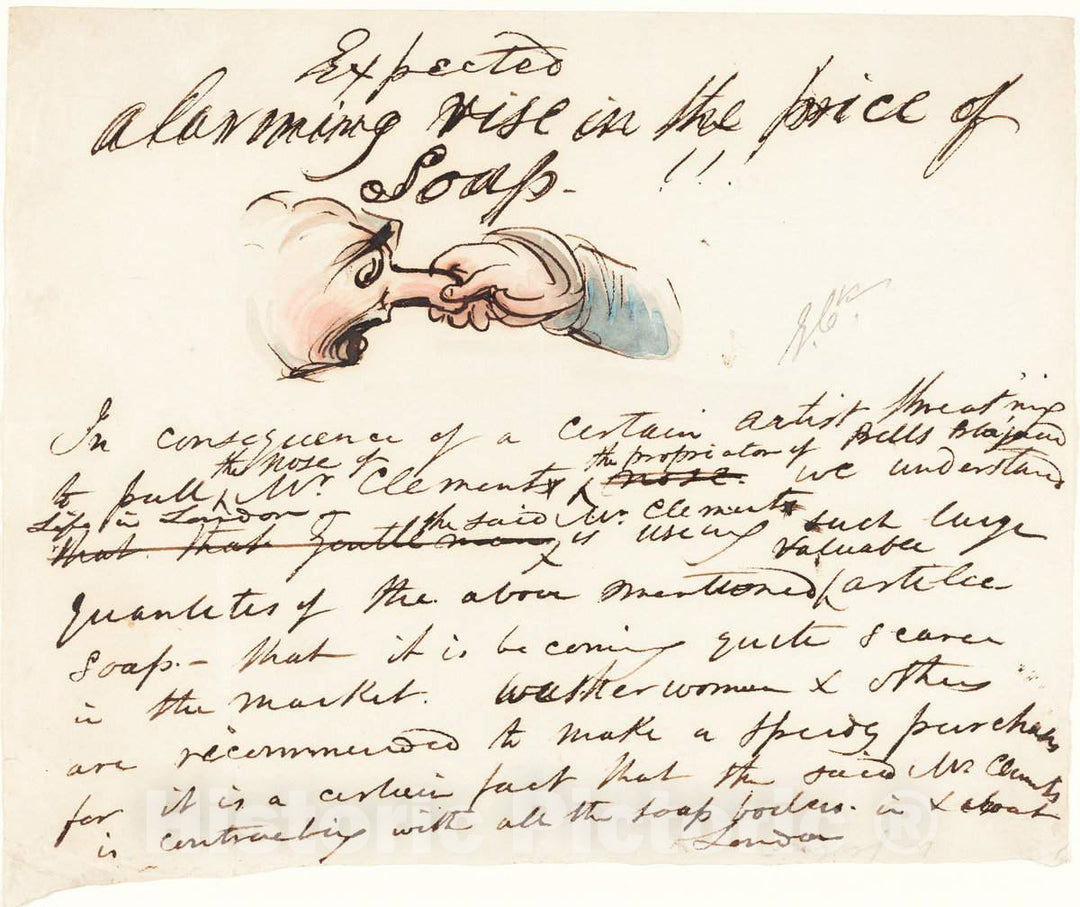 Expected
alarming rise in the price of
Soap - !!!
G Ck.
In consequence of a certain artist threat'nig
to pull the nose of Mr. Clements the proprietor of nose. Bells
we understand
Life in London - the said Mr. Clements
that that Gentleman is using such large
quantites of the above mentioned valuable article
Soap. - that it is becoming quite scarce
in the market. washerwomen & others
are recommended to make a speedy purchase
for it is a certain fact that the said Mr Clements
is contracting with all the soap boilers. in & about
London
Historic Pictoric ®